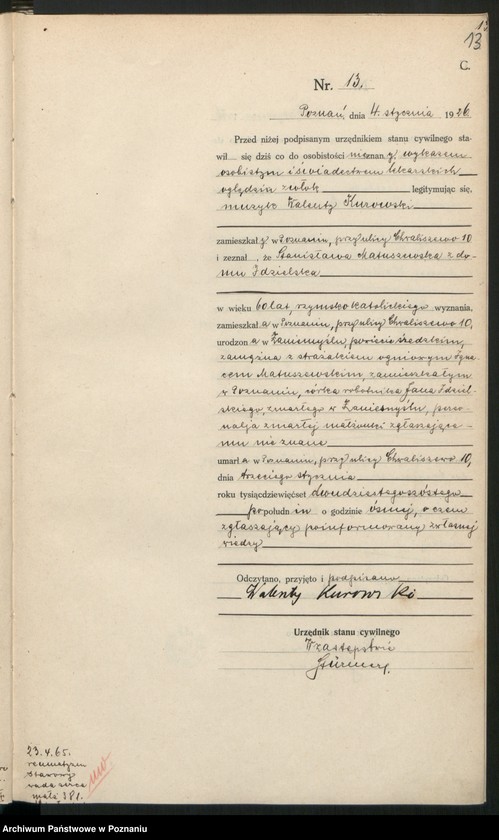 13
C.
Nr. 13.
Poznań, dnia 4. stycznia 1926
Przed niżej podpisanym urzędnikiem stanu cywilnego sta-
wił się dziś co do osobistości nieznany, wykazem
osobistym i świadectwem lekarskich
oględzin zwłok legitymując się,
muzyk Walenty Kurowski
zamieszkały w Poznaniu, przy ulicy Chwaliszewo 10
i zeznał, że Stanisława Matuszewska z do-
mu Idzielska
w wieku 60 lat, rzymsko katolickiego wyznania,
zamieszkała w Poznaniu, przy ulicy Chwaliszewo 10,
urodzona w Zaniemyślu, powiecie średzkim,
zamężna z strażakiem ogniowym Igna-
cem Matuszewskim, zamieszkałym
w Poznaniu, córka robotnika Jana Idziel-
skiego, zmarłego w Zaniemyślu, perso-
nalja zmarłej małżonki zgłaszające-
mu nie znane
umarła w Poznaniu, przy ulicy Chwaliszewo 10,
dnia trzeciego stycznia
roku tysiąc dziewięćset dwudziestegoszóstego
po południu o godzinie ósmej, o czem
zgłaszający poinformowany z własnej
wiedzy
Odczytano, przyjęto i podpisano
Walenty Kurowski
Urzędnik stanu cywilnego
W zastępstwie
23.4.65.
reumatyzm
stawowy
wada serca
381.
Archiwum Państwowe w Poznaniu